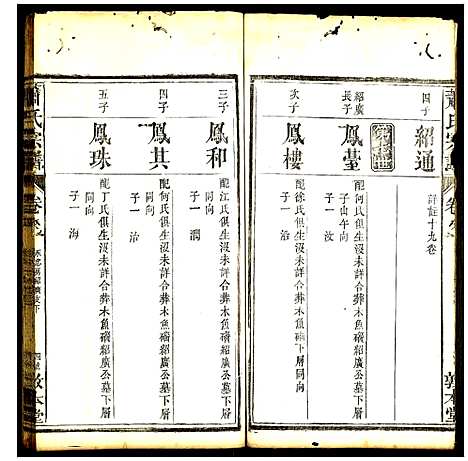 蕭氏宗譜
四子
紹通
詳註十九卷
紹廣長子
鳳臺
配何氏俱生沒未詳合葬木魚磡紹廣公墓下層
子山午向
子一汝
次子
鳳樓
配徐氏俱生沒未詳合葬木魚磡紹廣公墓下層同向
子一治
敦本堂
三子
鳳和
配江氏俱生沒未詳合葬木魚磡紹廣公墓下層
同向
子一澗
四子
鳳其
配何氏俱生沒未詳合葬木魚磡紹廣公墓下層
同向
子一治
五子
鳳珠
配丁氏俱生沒未詳合葬木魚磡紹廣公墓下層
同向
子一海
蕭氏宗譜
敦本堂